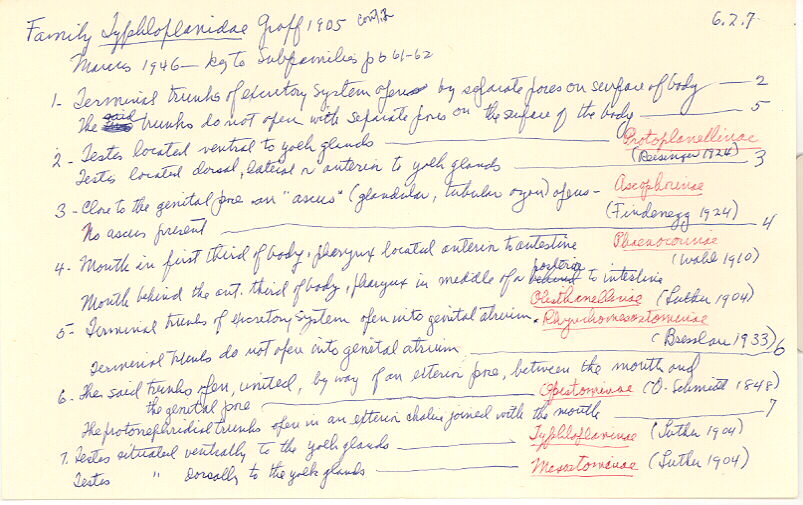 Family Typhloplanidae Graff 1905 cont. 2
6.2.7
Marcus 1946 — key to Subfamilies pp 61-62
1- Terminal trunks of excretory System open by separate pores on surface of body — 2
The said trunks do not open with separate pores on the surface of the body — 5
2 - Testes located ventral to yolk glands — Protoplanellinae
(Reisinger 1924)
Testes located dorsal, lateral or anterior to yolk glands — 3
3 - Close to the genital pore an "ascus" (glandular, tubular organ) opens - Ascophorinae
(Findenegg 1924)
No ascus present — 4
4 - Mouth in first third of body, pharynx located anterior to intestine Phaenocorinae
(Wahl 1910)
Mouth behind the ant. third of body, pharynx in middle of or posterior to intestine
Olisthanellinae (Luther 1904)
5 - Terminal trunks of excretory System open into genital atrium. Rhynchomesostominae
(Bresslau 1933)
Terminal trunks do not open into genital atrium — 6
6. The said trunks open, united, by way of an exterior pore, between the mouth and
the genital pore — Opistominae (O. Schmidt 1848)
The protonephridial trunks open in an exterior chalice joined with the mouth — 7
7. Testes situated ventrally to the yolk glands — Typhloplaninae (Luther 1904)
Testes " Dorsally to the yolk glands — Mesostominae (Luther 1904)